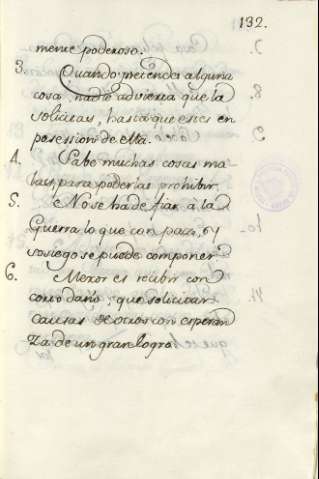 132.
mente poderoso.
3. Quando pretendes alguna
cosa, nadie advierta que la
solicitas, hasta que estes en
possession de ella.
4. Sabe muchas cosas ma-
las, para poderlas prohibir.
5. No se ha de fiar à la
Guerra lo que con paz, ó y
sosiego se puede componer
6. Menor es recibir con
corto daño, que solicitar
causas de otros con esperan
za de un gran logro.